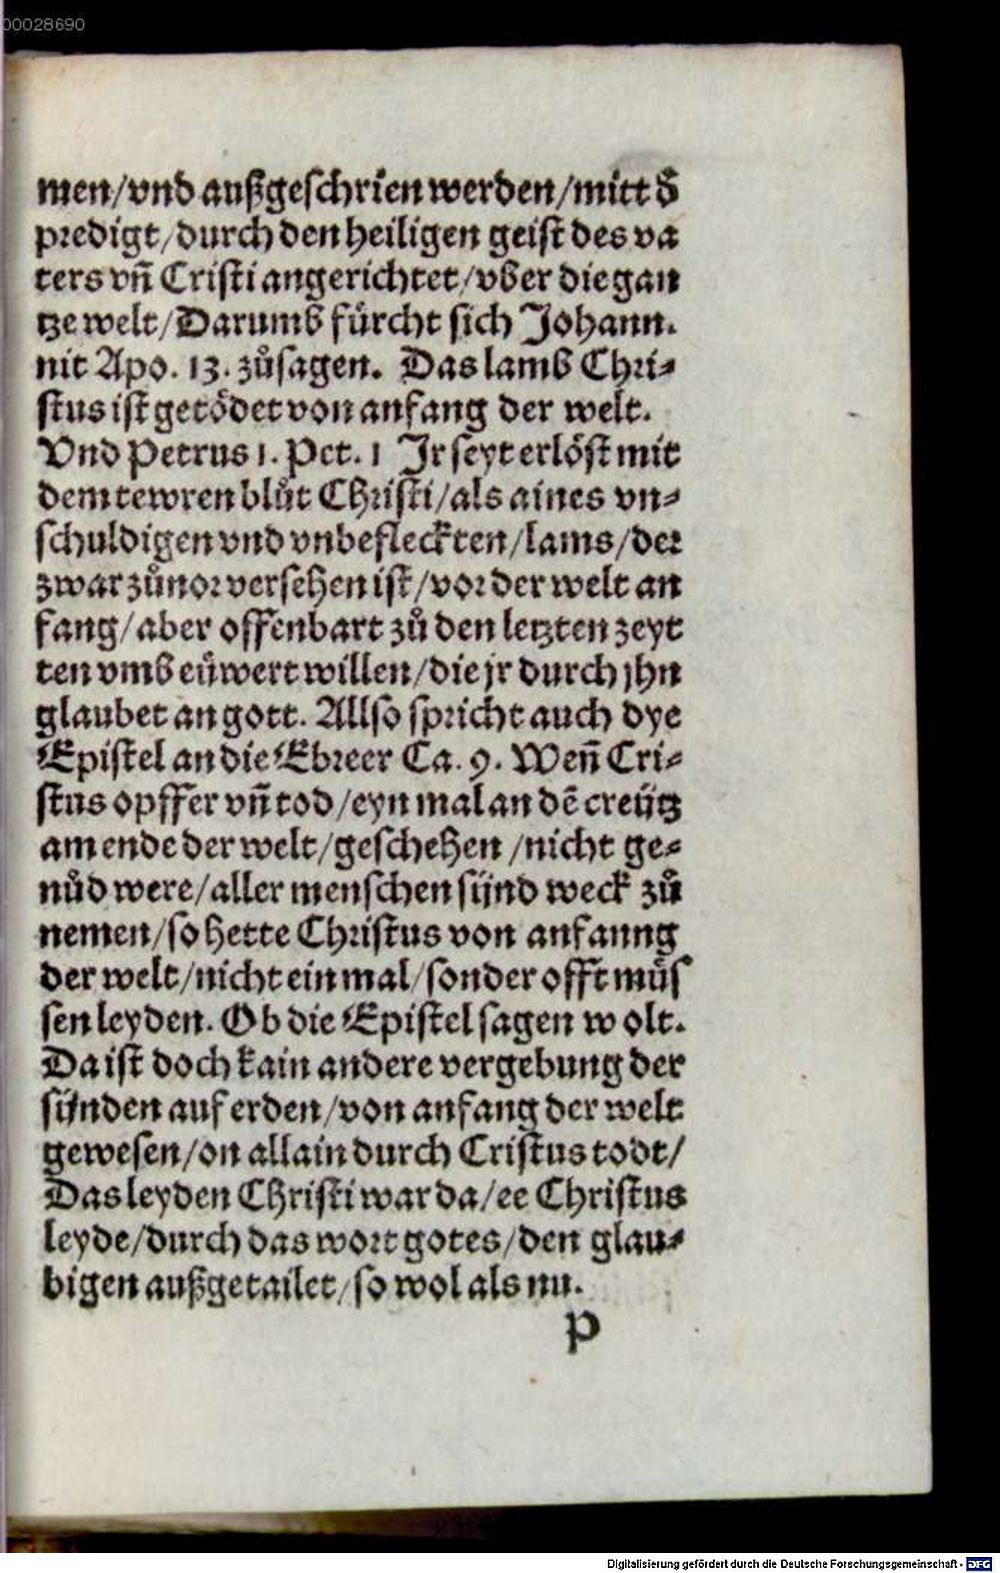 00028690
men/vnd außgeschrien werden/mitt d̄
predigt/durch den heiligen geist des va
ters vñ Cristi angerichtet/vber die gan
tze welt/Darumb fürcht sich Johann.
nit Apo. 13. zůsagen. Das lamb Chri-
stus ist getödet von anfang der welt.
Vnd Petrus 1. Pet. 1 Jr seyt erlöst mit
dem tewren blůt Christi/als aines vn-
schuldigen vnd vnbefleckten/lams/der
zwar zůuor versehen ist/vor der welt an
fang/aber offenbart zů den letzten zeyt
ten vmb eüwert willen/die jr durch jhn
glaubet an gott. Allso spricht auch dye
Epistel an die Ebreer Ca. 9. Weñ Cri-
stus opffer vñ tod/eyn mal an dē creütz
am ende der welt/geschehen /nicht ge-
nůd were/aller menschen sünd weck zů
nemen/so hette Christus von anfanng
der welt/nicht ein mal/sonder offt müs
sen leyden. Ob die Epistel sagen wolt.
Da ist doch kain andere vergebung der
sünden auf erden/von anfang der welt
gewesen/on allain durch Cristus todt/
Das leyden Christi war da/ee Christus
leyde/durch das wort gotes/den glau-
bigen außgetailet/so wol als nu.
P
Digitalisierung gefördert durch die Deutsche Forschungsgemeinschaft - DFG